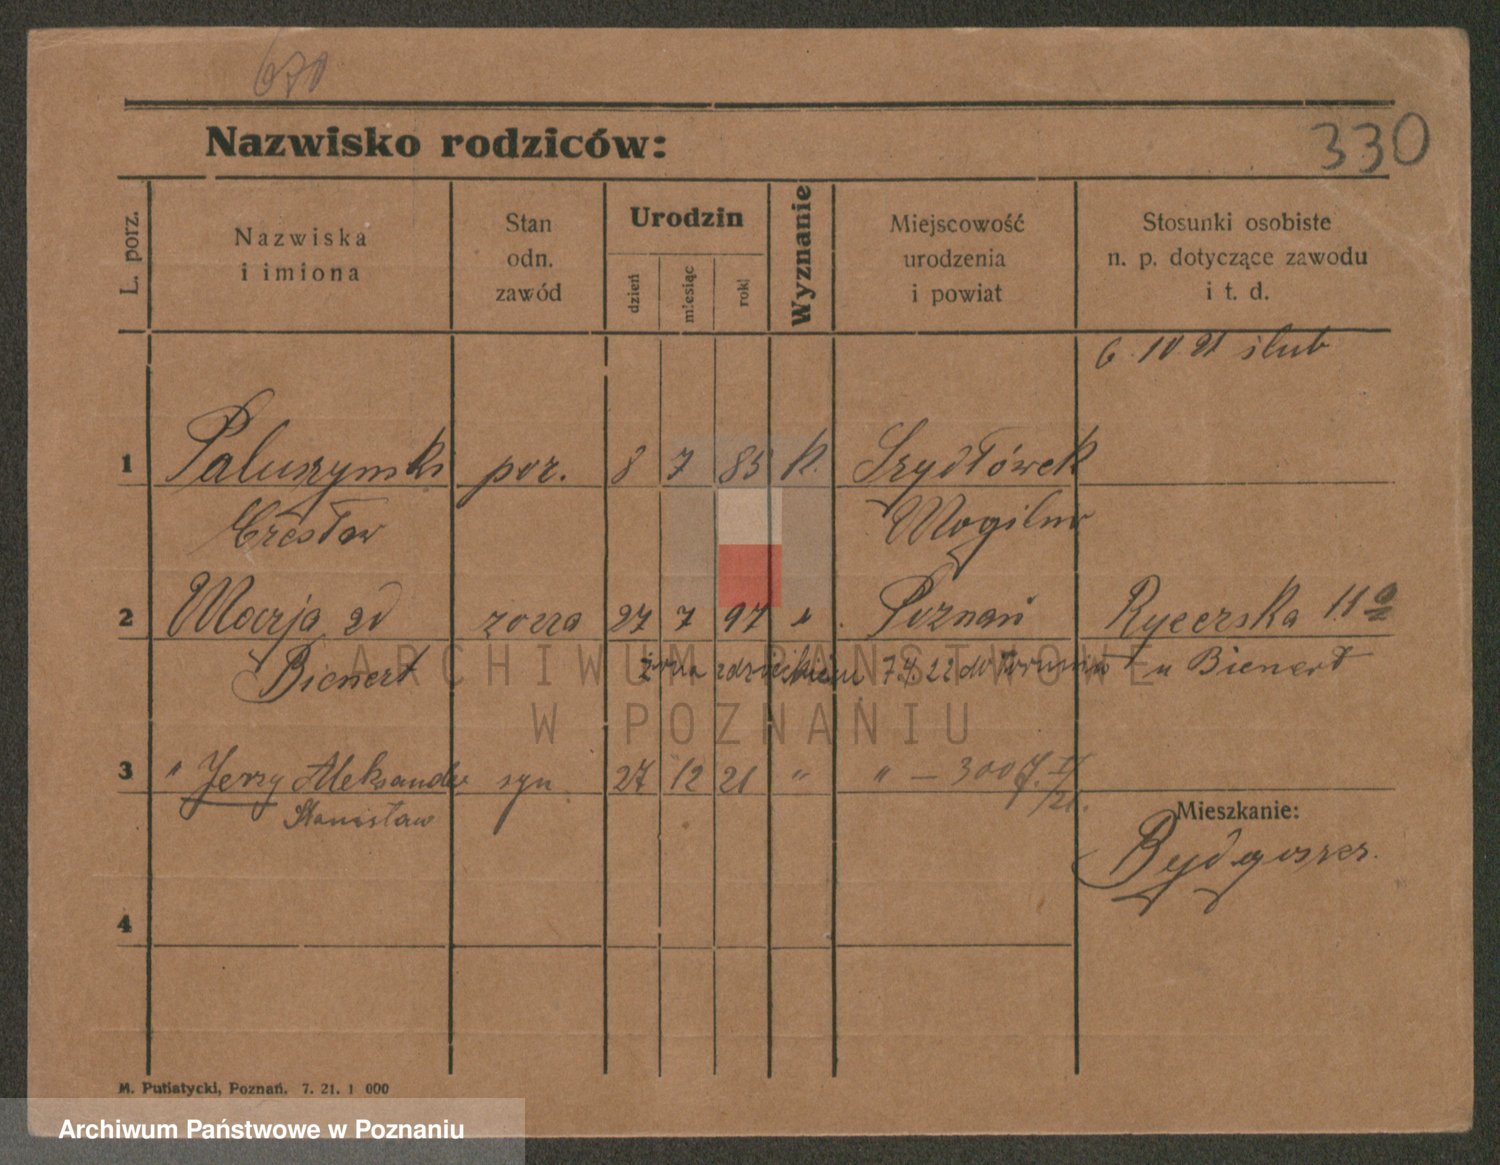 670
330
Nazwisko rodziców:
L. porz.
Nazwiska
i imiona
Stan
odn.
zawód
Urodzin
dzień
miesiąc
rok
Wyznanie
Miejscowość
urodzenia
i powiat
Stosunki osobiste
n. p. dotyczące zawodu
i t. d.
6. 10 21 ślub
1 Paluszynski por. 8 7 85 k. Szydłówek
Czesław Mogilno
2 Marja zd żona 27 7 97 " Poznań Rycerska 11a
Bienert żona z dzieckiem 7.4.22 do Torunia u Bienert
3 " Jerzy Aleksander syn 27 12 21 " " — 300
Stanisław
Mieszkanie:
Bydgoszcz.
4
M. Putiatycki, Poznań. 7. 21. 1 000
ARCHIWUM PAŃSTWOWE
W POZNANIU
Archiwum Państwowe w Poznaniu